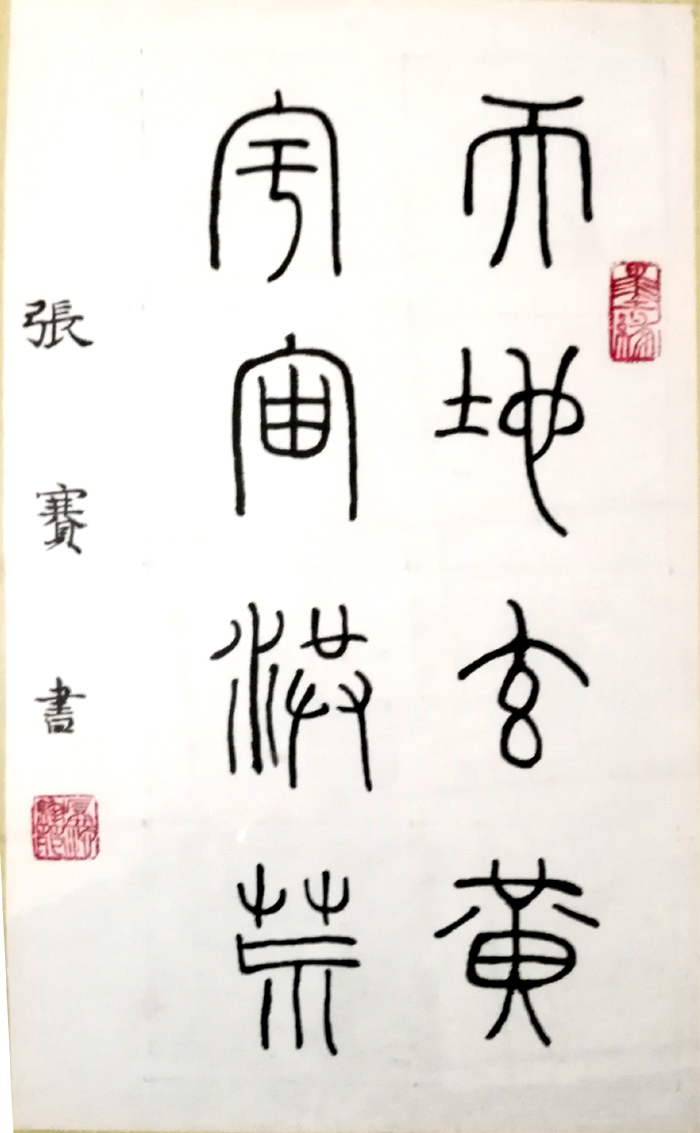 天地玄黃
宇宙洪荒
張賽書
墨緣